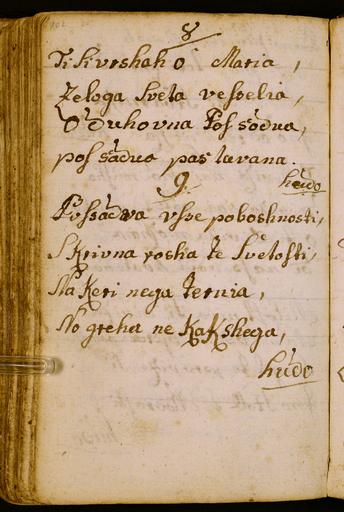 8
Ti kvrshah ó Maria,
Zeloga Sveta vesvelia,
O Duhovna Posóda,
possáda pas luvana.
húdo
9.
Possáda vse poboshnosti,
Skrivna rosha te Svetosti,
Na Keri nega ternia,
No greha ne KaKshega,
húdo